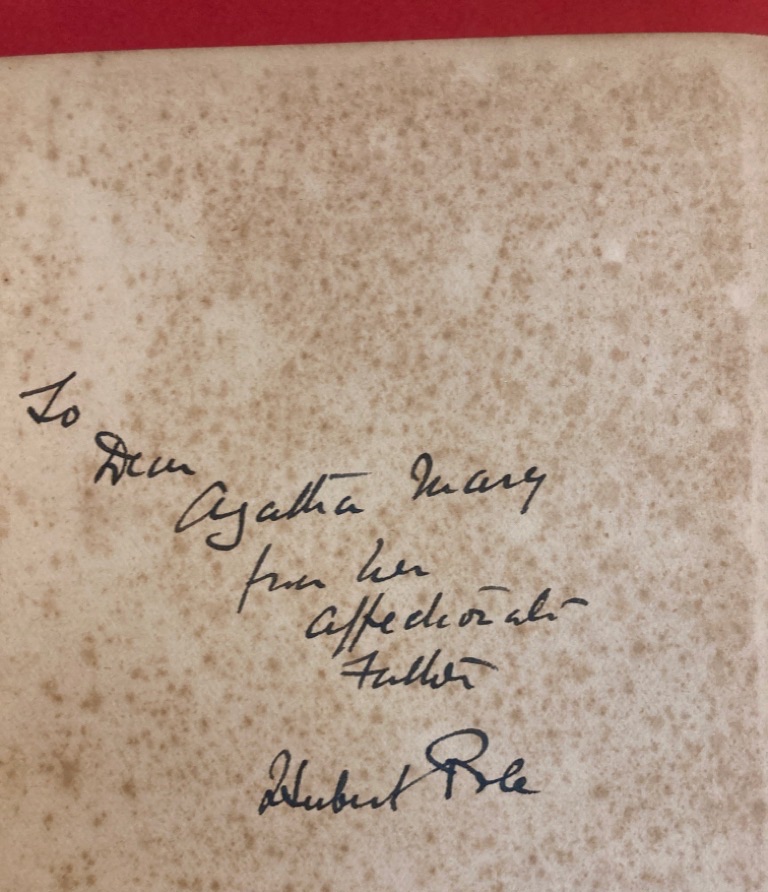 To
Dear
Agatha Mary
from her
affectionate
Father
Hubert